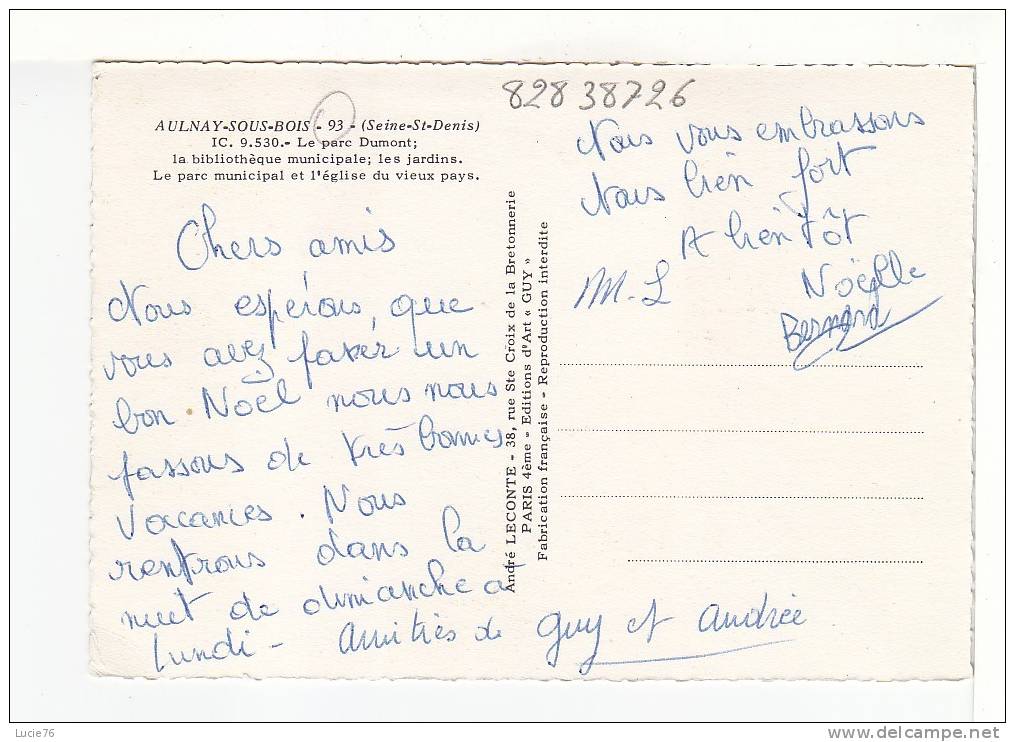 82838726
AULNAY-SOUS-BOIS - 93 - (Seine-St-Denis)
IC. 9.530.- Le parc Dumont;
la bibliothèque municipale; les jardins.
Le parc municipal et l'église du vieux pays.
Chers amis
Nous espérons, que
vous avez passer un
bon Noël nous nous
passons de très bonnes
vacances. Nous
rentrons dans la
nuit de dimanche à
lundi - Amitiés de Guy et Andrée
André LECONTE - 38, rue Ste Croix de la Bretonnerie
PARIS 4ème - Editions d'Art « GUY »
Fabrication française - Reproduction interdite
Nous vous embrassons
Nous bien fort
A bientôt
M. L Noëlle
Bernard
Lucie76
www.delcampe.net